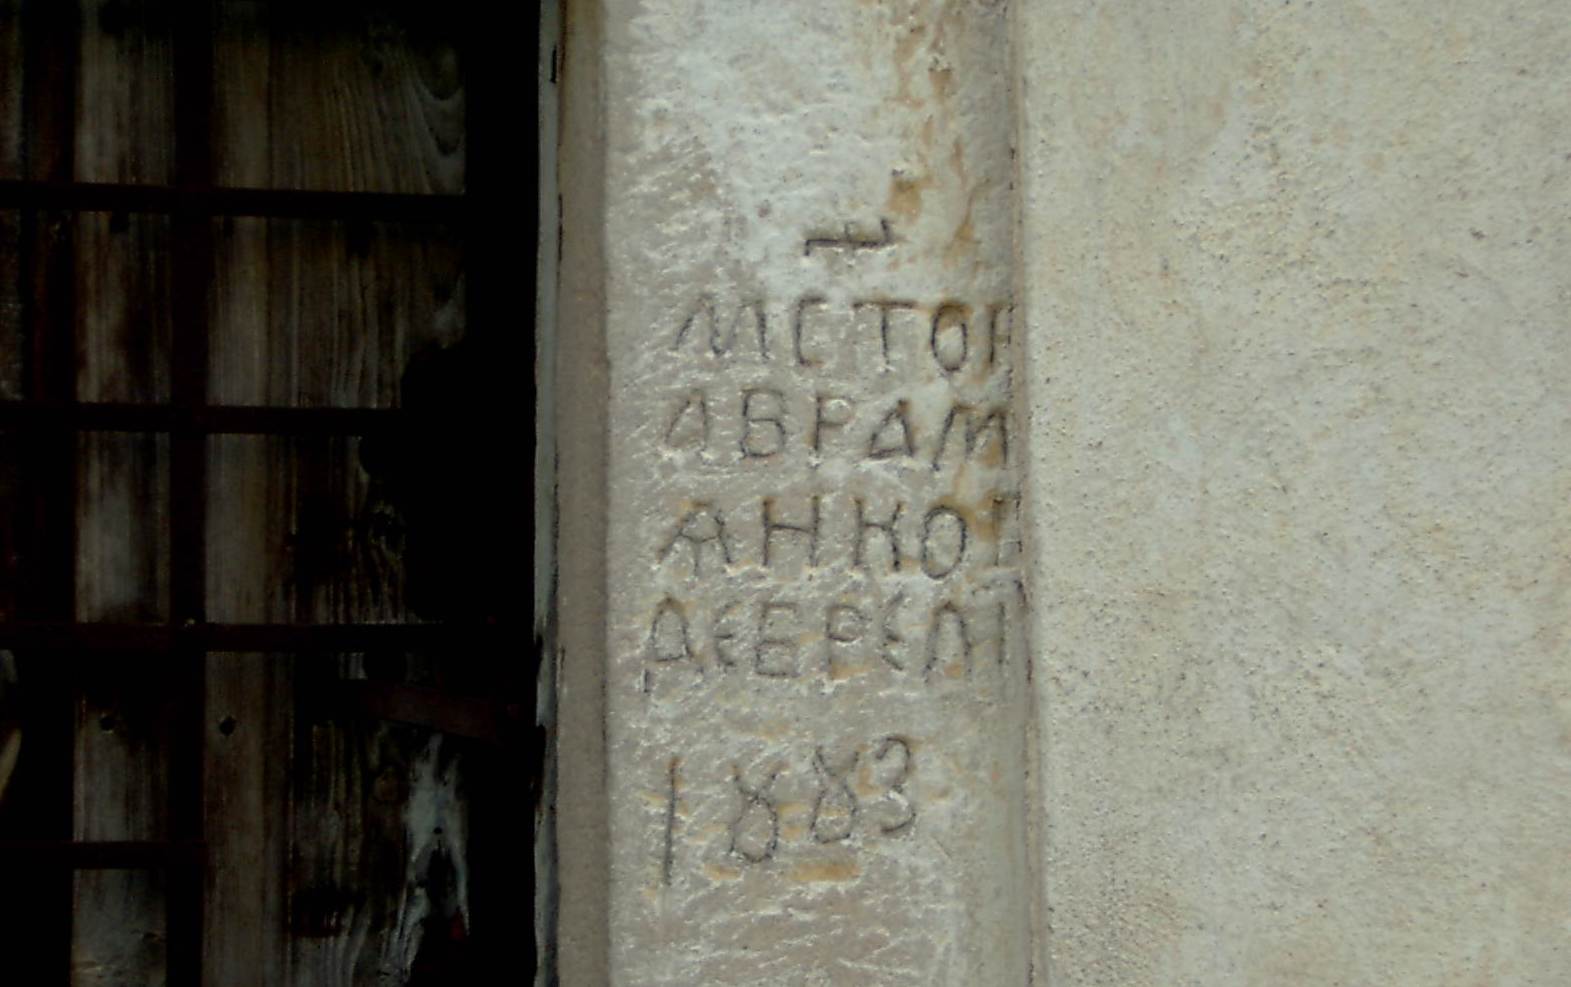 МСТОР
АВРАМ
ѦНКОВ
ДЕВРЕЛІ
1883